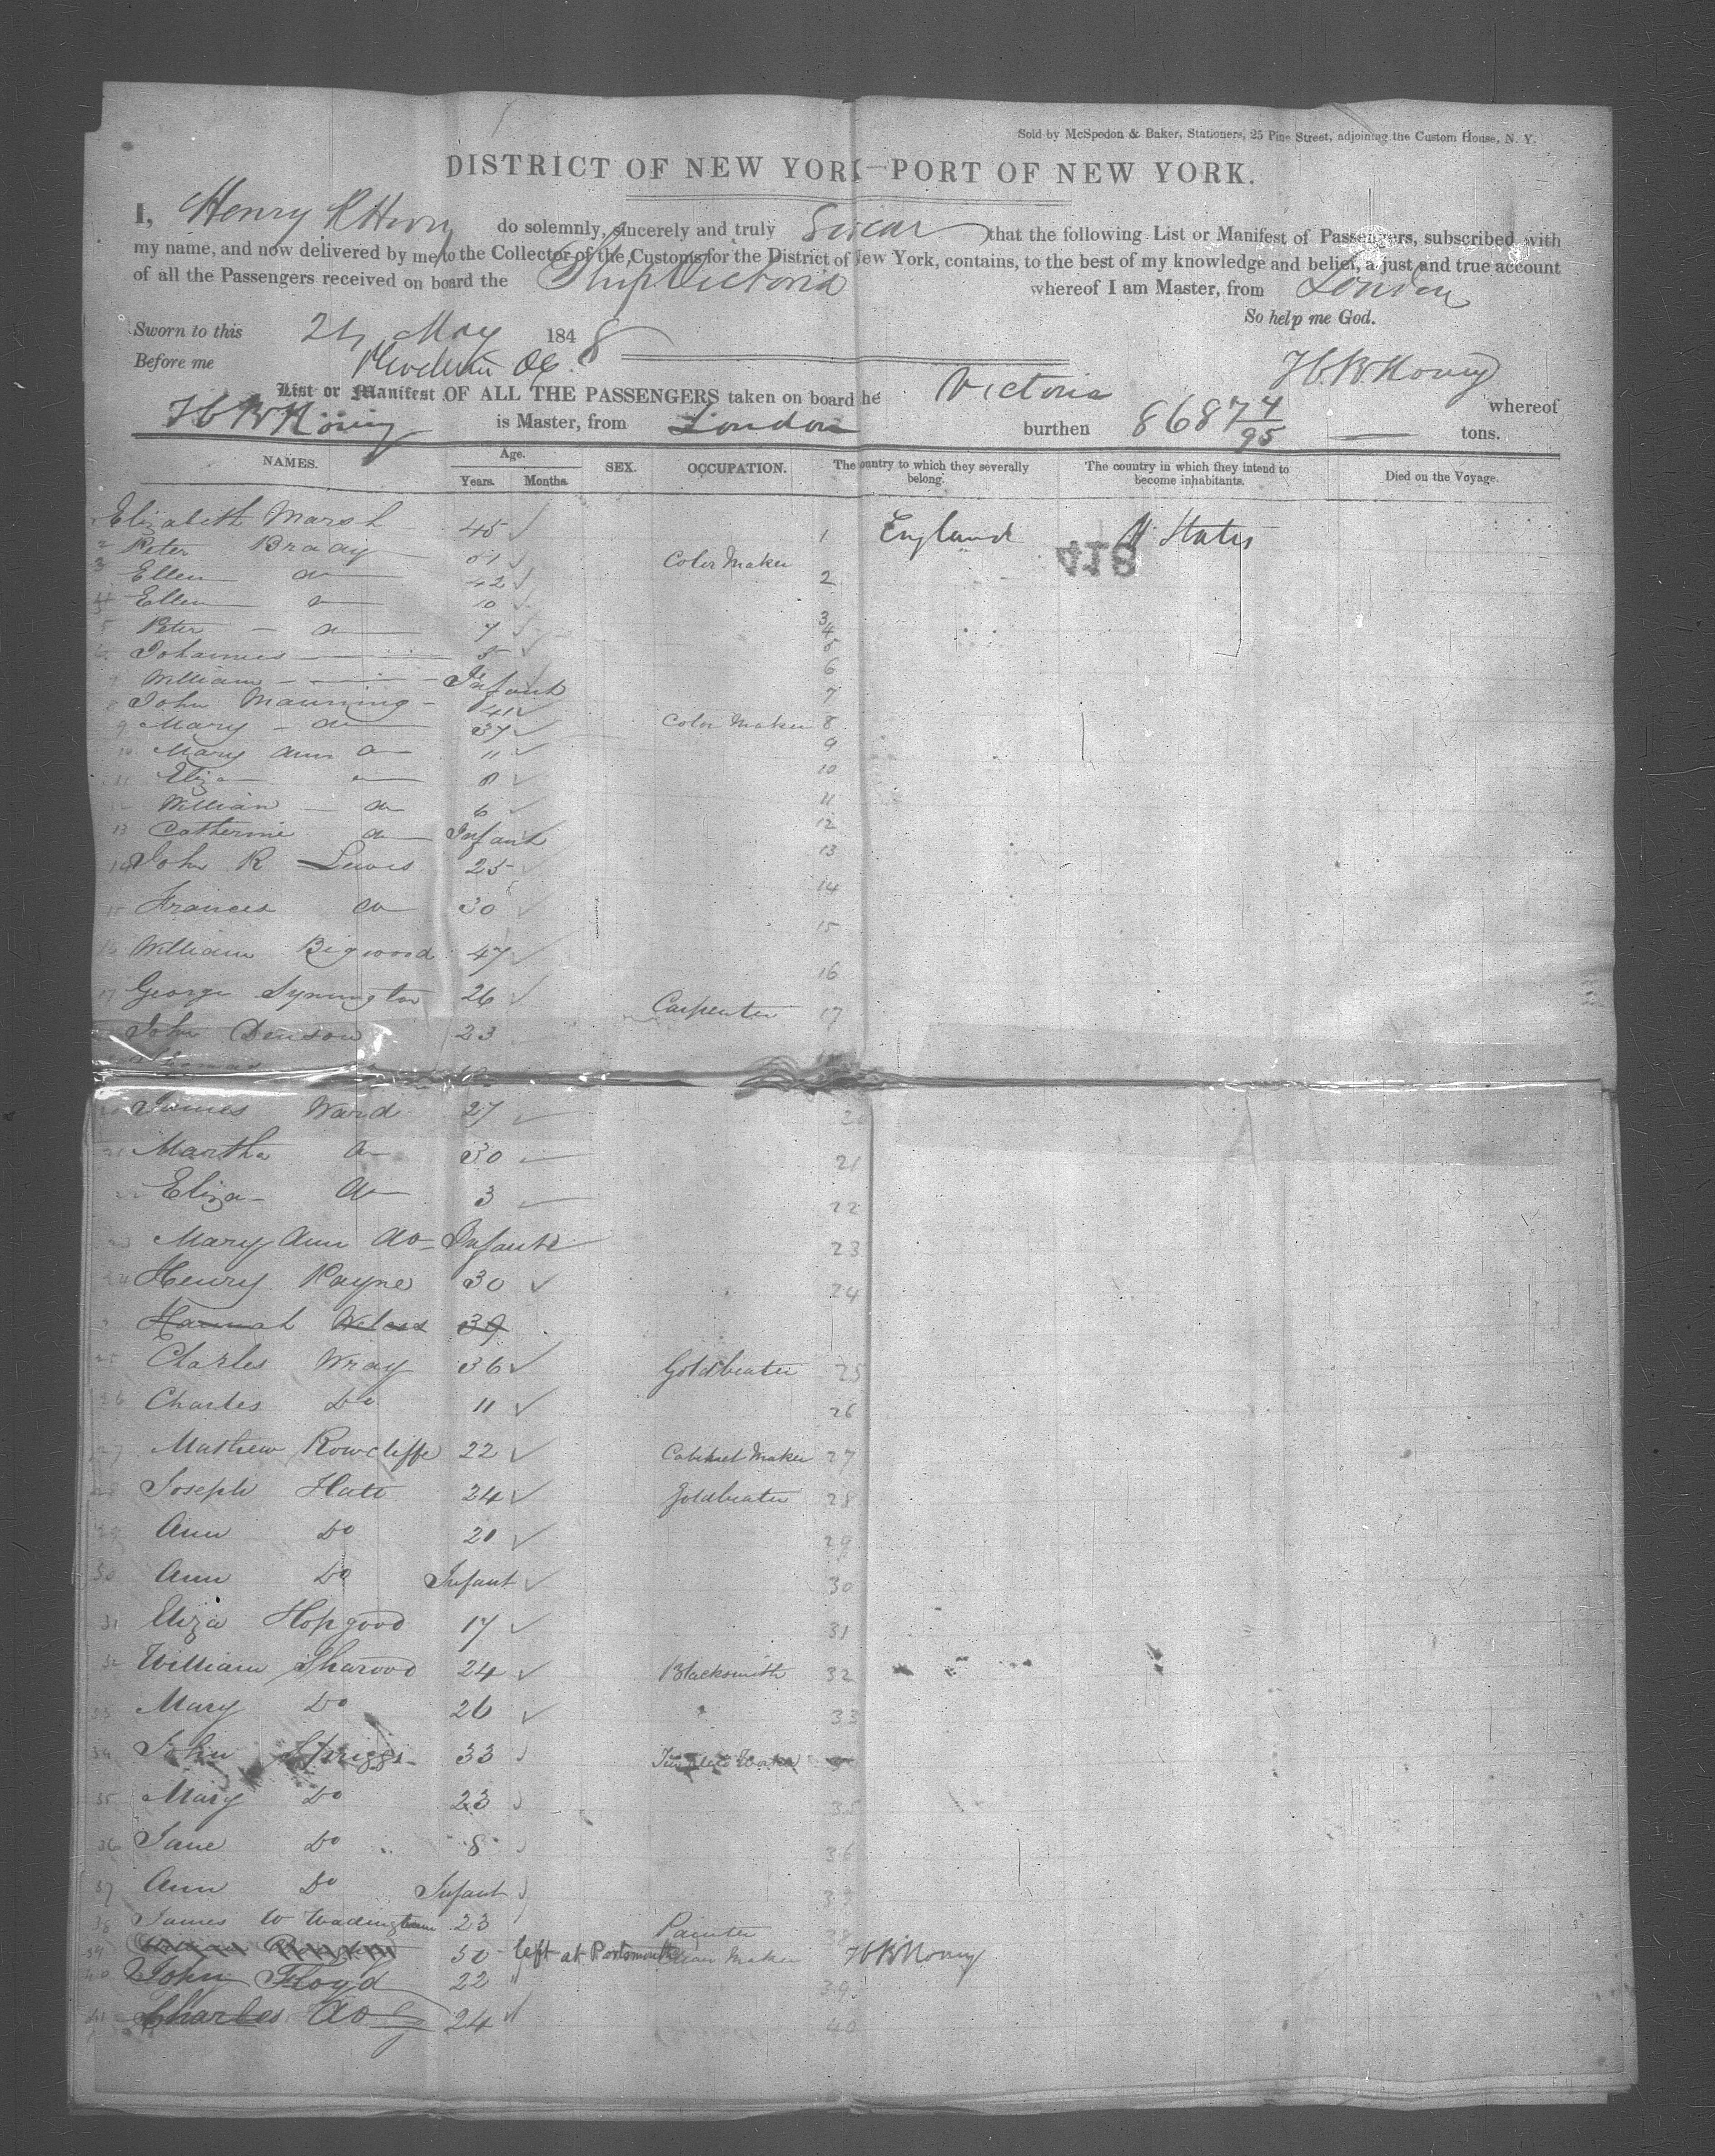 Sold by McSpedon & Baker, Stationers, 25 Pine Street, adjoining the Custom House, N. Y.
DISTRICT OF NEW YORK—PORT OF NEW YORK.
I, Henry do solemnly, sincerely and truly Swear that the following List or Manifest of Passengers, subscribed with
my name, and now delivered by me to the Collector of the Customs for the District of New York, contains, to the best of my knowledge and belief, a just and true account
of all the Passengers received on board the Ship Victoria whereof I am Master, from London
So help me God.
Sworn to this 24 May 1848
Before me
List or Manifest OF ALL THE PASSENGERS taken on board the Victoria whereof
is Master, from London burthen 868 74/95 tons.
NAMES. Age. Years. Months. SEX. OCCUPATION. The country to which they severally belong. The country in which they intend to become inhabitants. Died on the Voyage.
Elizabeth Marsh 45 1 England U States
418
2 Peter Brady 51 Color Maker 2
3 Ellen Do 42
4 Ellen Do 10 3
5 Peter Do 7 4
6 Johannes 5 5
7 William Infant 6
8 John Manning 41 7
9 Mary Do 37 Color Maker 8
10 Mary Ann Do 11 9
11 Eliza Do 8 10
12 William Do 6 11
13 Catherine Do Infant 12
14 John R Lewis 25 13
15 Frances Do 30 14
15
16 William Bigwood 47 16
17 George Symington 26 Carpenter 17
John Denson 23
Thomas
James Ward 27 20
21 Martha Do 30 21
22 Eliza Do 3 22
23 Mary Ann Do Infant 23
24 Henry Payne 30 24
Hannah 39
25 Charles Wray 36 Goldbeater 25
26 Charles Do 11 26
27 Mathew Rowcliffe 22 Cabinet Maker 27
28 Joseph Hate 24 Goldbeater 28
29 Ann Do 20 29
30 Ann Do Infant 30
31 Eliza Hopgood 17 31
32 William Sharood 24 Blacksmith 32
33 Mary Do 26 33
34 John Spriggs 33
35 Mary Do 23 35
36 Jane Do 8 36
37 Ann Do Infant 37
38 James W Wadingham 23 Painter 38
39 50 left at Portsmouth Maker
40 John Floyd 22 39
41 Charles Do 24 40